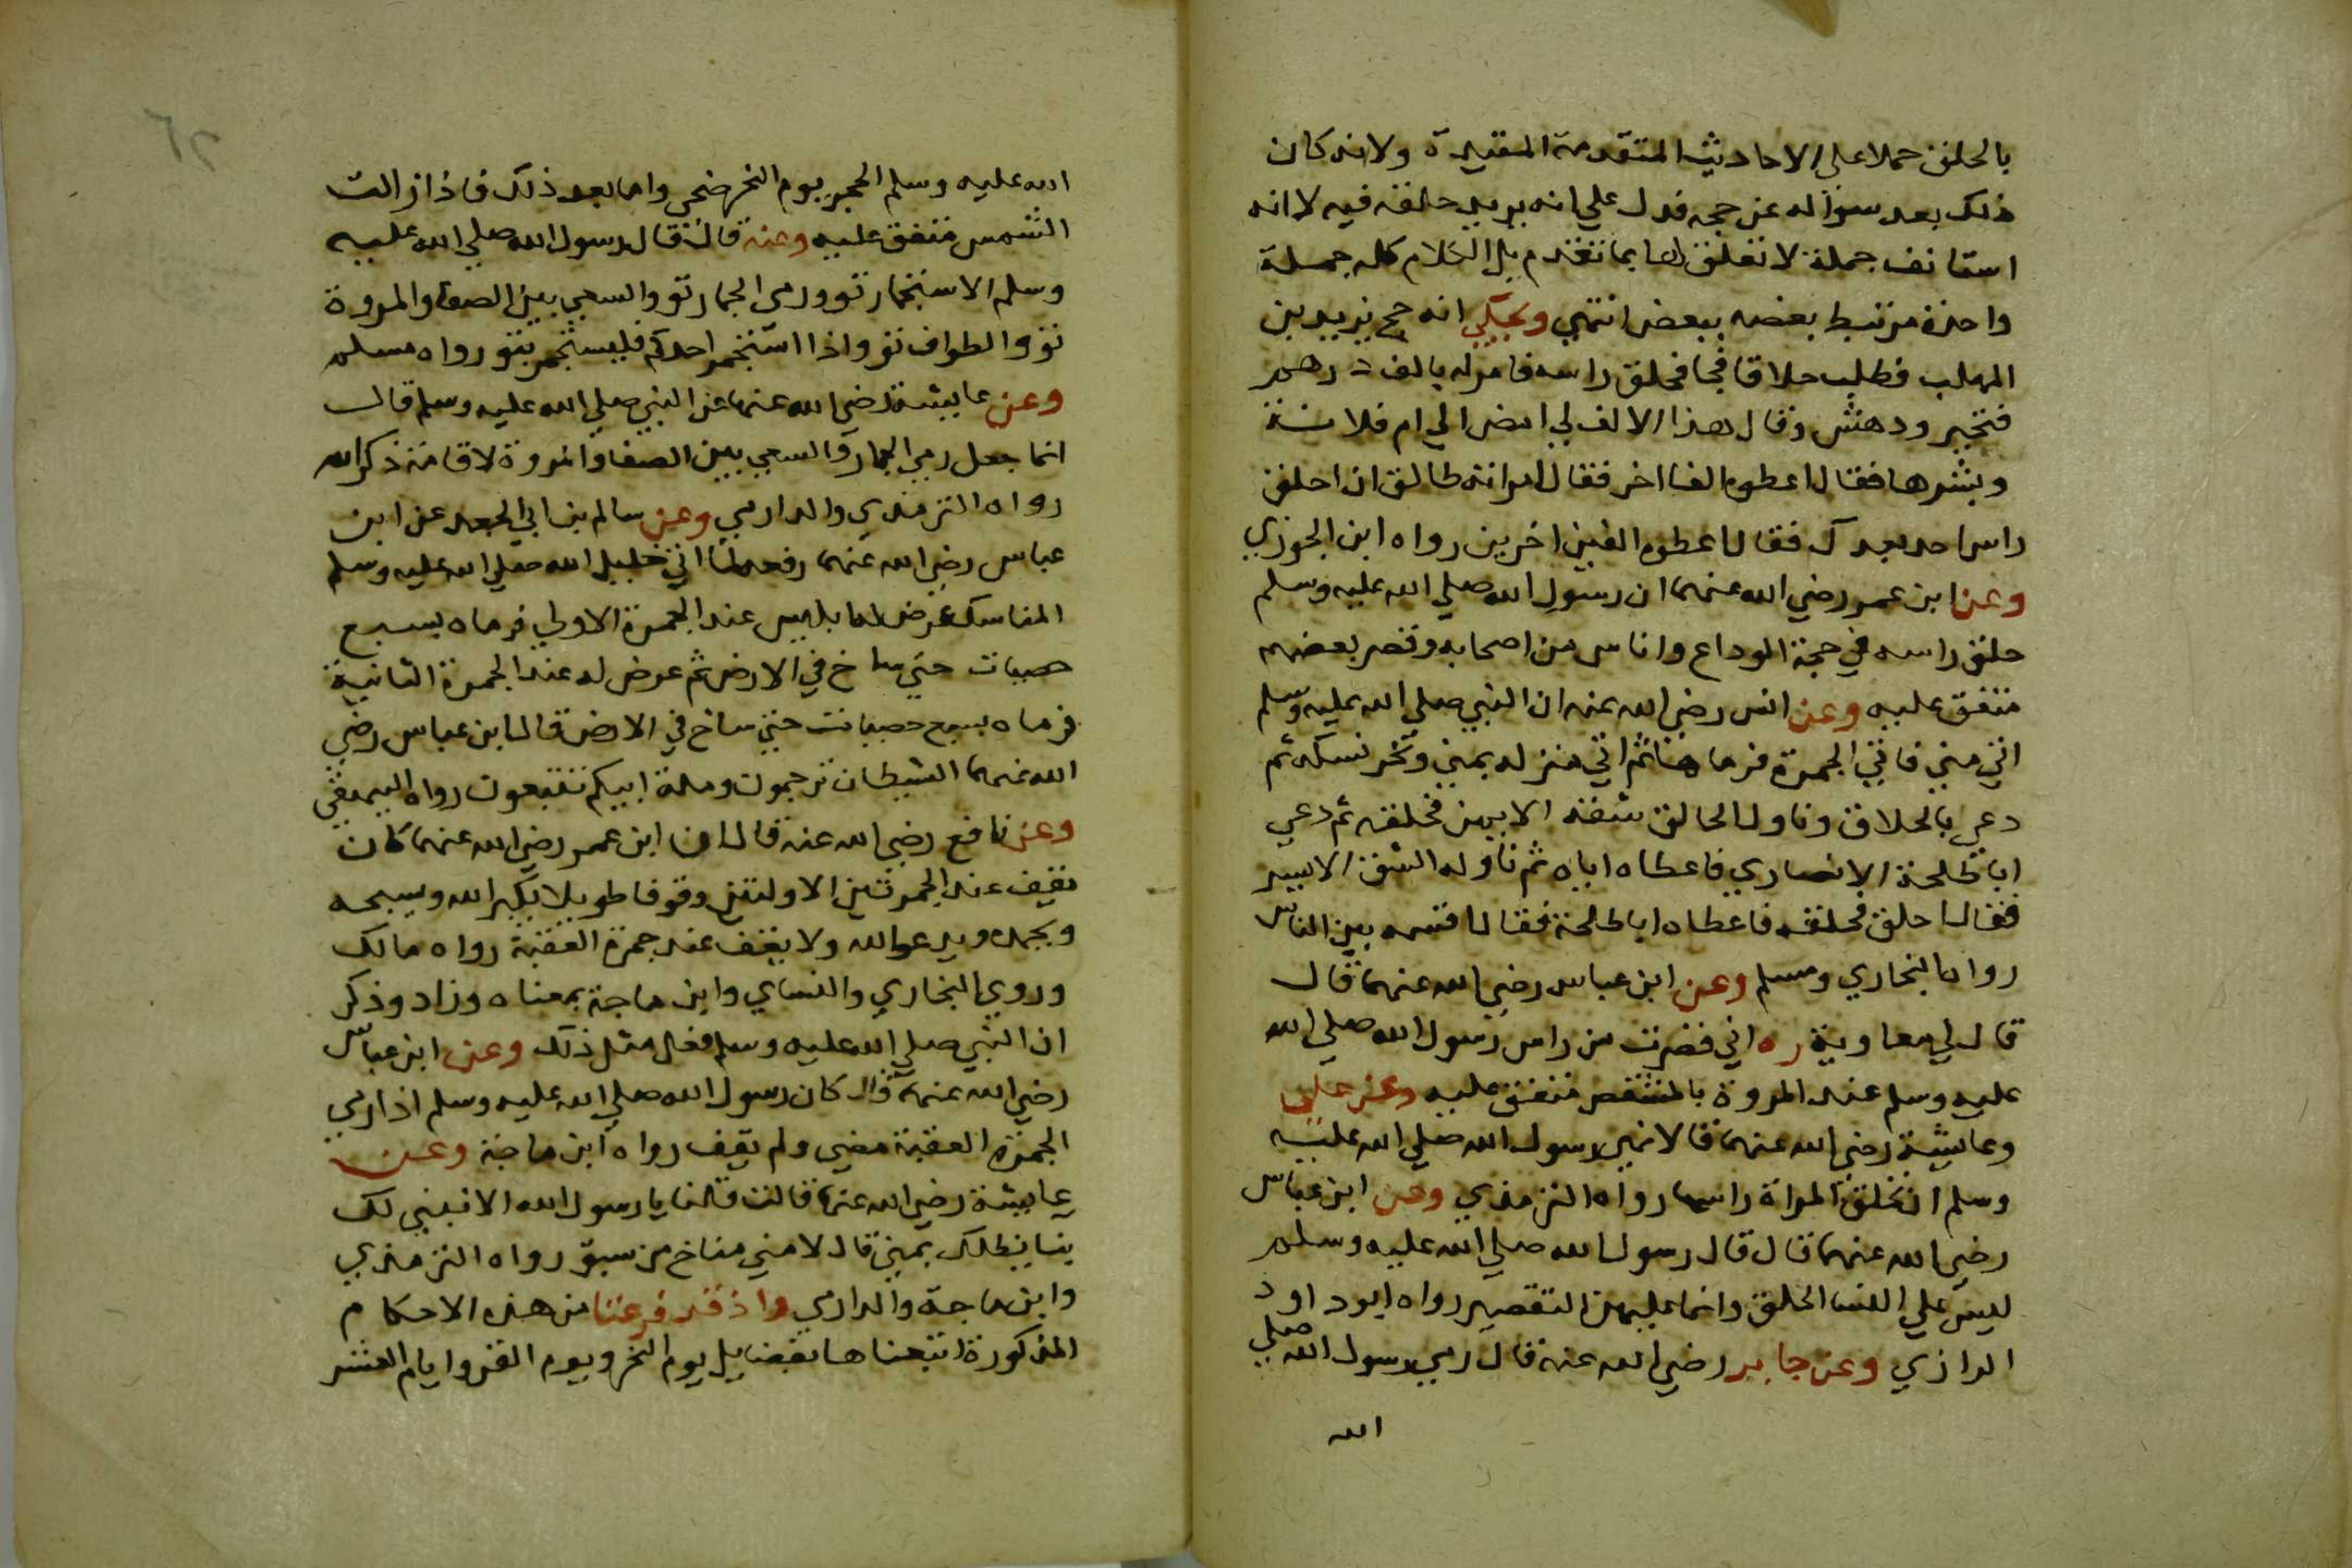 بالحلق حملا علي الاحاديث المتقدمة المقيدة ولانه كان
ذلك بعد سؤاله عن حجه فدل علي انه يريد حلقه فيه لا انه
استانف جملة لا تعلق لها بما تقدم بل الكلام كله جملة
واحدة مرتبط بعضه ببعض انتهي ويحكي انه حج يزيد بن
المهلب فطلب حلاقا فجا فحلق راسه فامر له بالف درهم
فتحير ودهش وقال هذا الالف لي امضي الي ام فلانة
وبشرها فقال اعطوه الفا اخر فقال امراته طالق ان احلق
راس احد بعدك فقال اعطوه الفين اخرين رواه ابن الجوزي
وعن ابن عمر رضي الله عنهما ان رسول الله صلي الله عليه وسلم
حلق راسه في حجة الوداع واناس من اصحابه وقصر بعضهم
متفق عليه وعن انس رضي الله عنه ان النبي صلي الله عليه وسلم
اتي مني فاتي الجمرة فرماها ثم اتي منزله بمني ونحر نسكه ثم
دعي بالحلاق وناول الحالق شقه الايمن فحلقه ثم دعي
ابا طلحة الانصاري فاعطاه اياه ثم ناوله الشق الايسر
فقال احلق فحلقه فاعطاه ابا طلحة فقال اقسمه بين الناس
رواه البخاري ومسلم وعن ابن عباس رضي الله عنهما قال
قال لي معاوية ره اني قصرت من راس رسول الله صلي الله
عليه وسلم عند المروة بالمشقص متفق عليه وعن علي
وعايشة رضي الله عنهما قالا نهي رسول الله صلي الله عليه
وسلم ان تحلق المراة راسها رواه الترمذي وعن ابن عباس
رضي الله عنهما قال قال رسول الله صلي الله عليه وسلم
ليس علي النسا الحلق وانما عليهن التقصير رواه ابو داود
الرازي وعن جابر رضي الله عنه قال رمي رسول الله صلي
الله
٦٢
الله عليه وسلم الجمر يوم النحر ضحي واما بعد ذلك فاذا زالت
الشمس متفق عليه وعنه قال قال رسول الله صلي الله عليه
وسلم الاستجمار تو ورمي الجمار تو والسعي بين الصفا والمروة
تو والطواف تو واذا استجمر احدكم فليستجمر بتو رواه مسلم
وعن عايشة رضي الله عنها عن النبي صلي الله عليه وسلم قال
انما جعل رمي الجمار والسعي بين الصفا والمروة لاقامة ذكر الله
رواه الترمذي والدارمي وعن سالم بن ابي الجعد عن ابن
عباس رضي الله عنهما رفعه لما اتي خليل الله صلي الله عليه وسلم
المناسك عرض له ابليس عند الجمرة الاولي فرماه بسبع
حصيات حتي ساخ في الارض ثم عرض له عند الجمرة الثانية
فرماه بسبع حصيات حتي ساخ في الارض قال ابن عباس رضي
الله عنهما الشيطان ترجمون وملة ابيكم تتبعون رواه البيهقي
وعن نافع رضي الله عنه قال ان ابن عمر رضي الله عنهما كان
يقف عند الجمرتين الاولتين وقوفا طويلا يكبر الله ويسبحه
ويحمده ويدعو الله ولا يقف عند جمرة العقبة رواه مالك
وروي البخاري والنساي وابن ماجة بمعناه وزاد وذكر
ان النبي صلي الله عليه وسلم فعل مثل ذلك وعن ابن عباس
رضي الله عنهما قال كان رسول الله صلي الله عليه وسلم اذا رمي
الجمرة العقبة مضي ولم يقف رواه ابن ماجة وعن
عايشة رضي الله عنها قالت قلنا يا رسول الله الا نبني لك
بنا يظلك بمني قال لا مني مناخ من سبق رواه الترمذي
وابن ماجة والدارمي واذ قد فرغنا من هذه الاحكام
المذكورة اتبعناها بفضايل يوم النحر ويوم القر وايام العشر